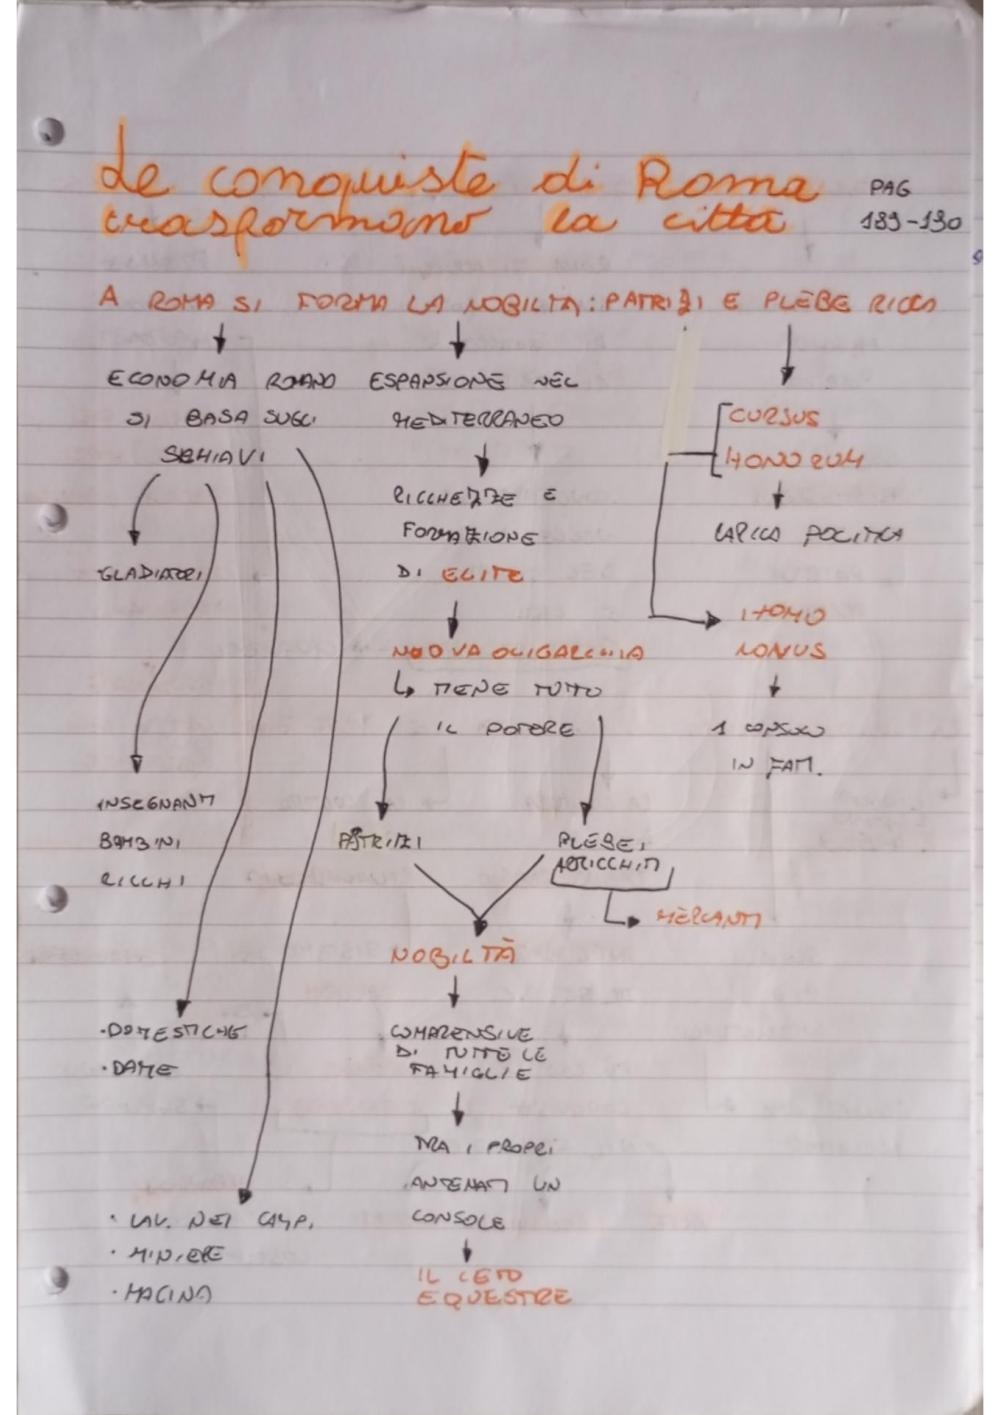 Le conquiste di Roma
trasformano la città
PAG
189-190
A ROMA SI FORMA LA NOBILTÀ: PATRIZI E PLEBE RICCA
ECONOMIA ROMANO
SI BASA SUGLI
SCHIAVI
GLADIATORI
INSEGNANTI
BAMBINI
RICCHI
·DOMESTICHE
·DAME
· LAV. NEI CAMP.
· MINIERE
· MACINA
ESPANSIONE NEL
MEDITERRANEO
RICCHEZZE E
FORMAZIONE
DI ELITE
NUOVA OLIGARCHIA
↳ TIENE TUTTO
IL POTERE
PATRIZI
PLEBEI
ARRICCHITI
MERCANTI
NOBILTÀ
COMPRENSIVE
DI TUTTE LE
FAMIGLIE
TRA I PROPRI
ANTENATI UN
CONSOLE
IL CETO
EQUESTRE
CURSUS
HONORUM
CARICA POLITICA
HOMO
NOVUS
1 CONSOLE
IN FAM.